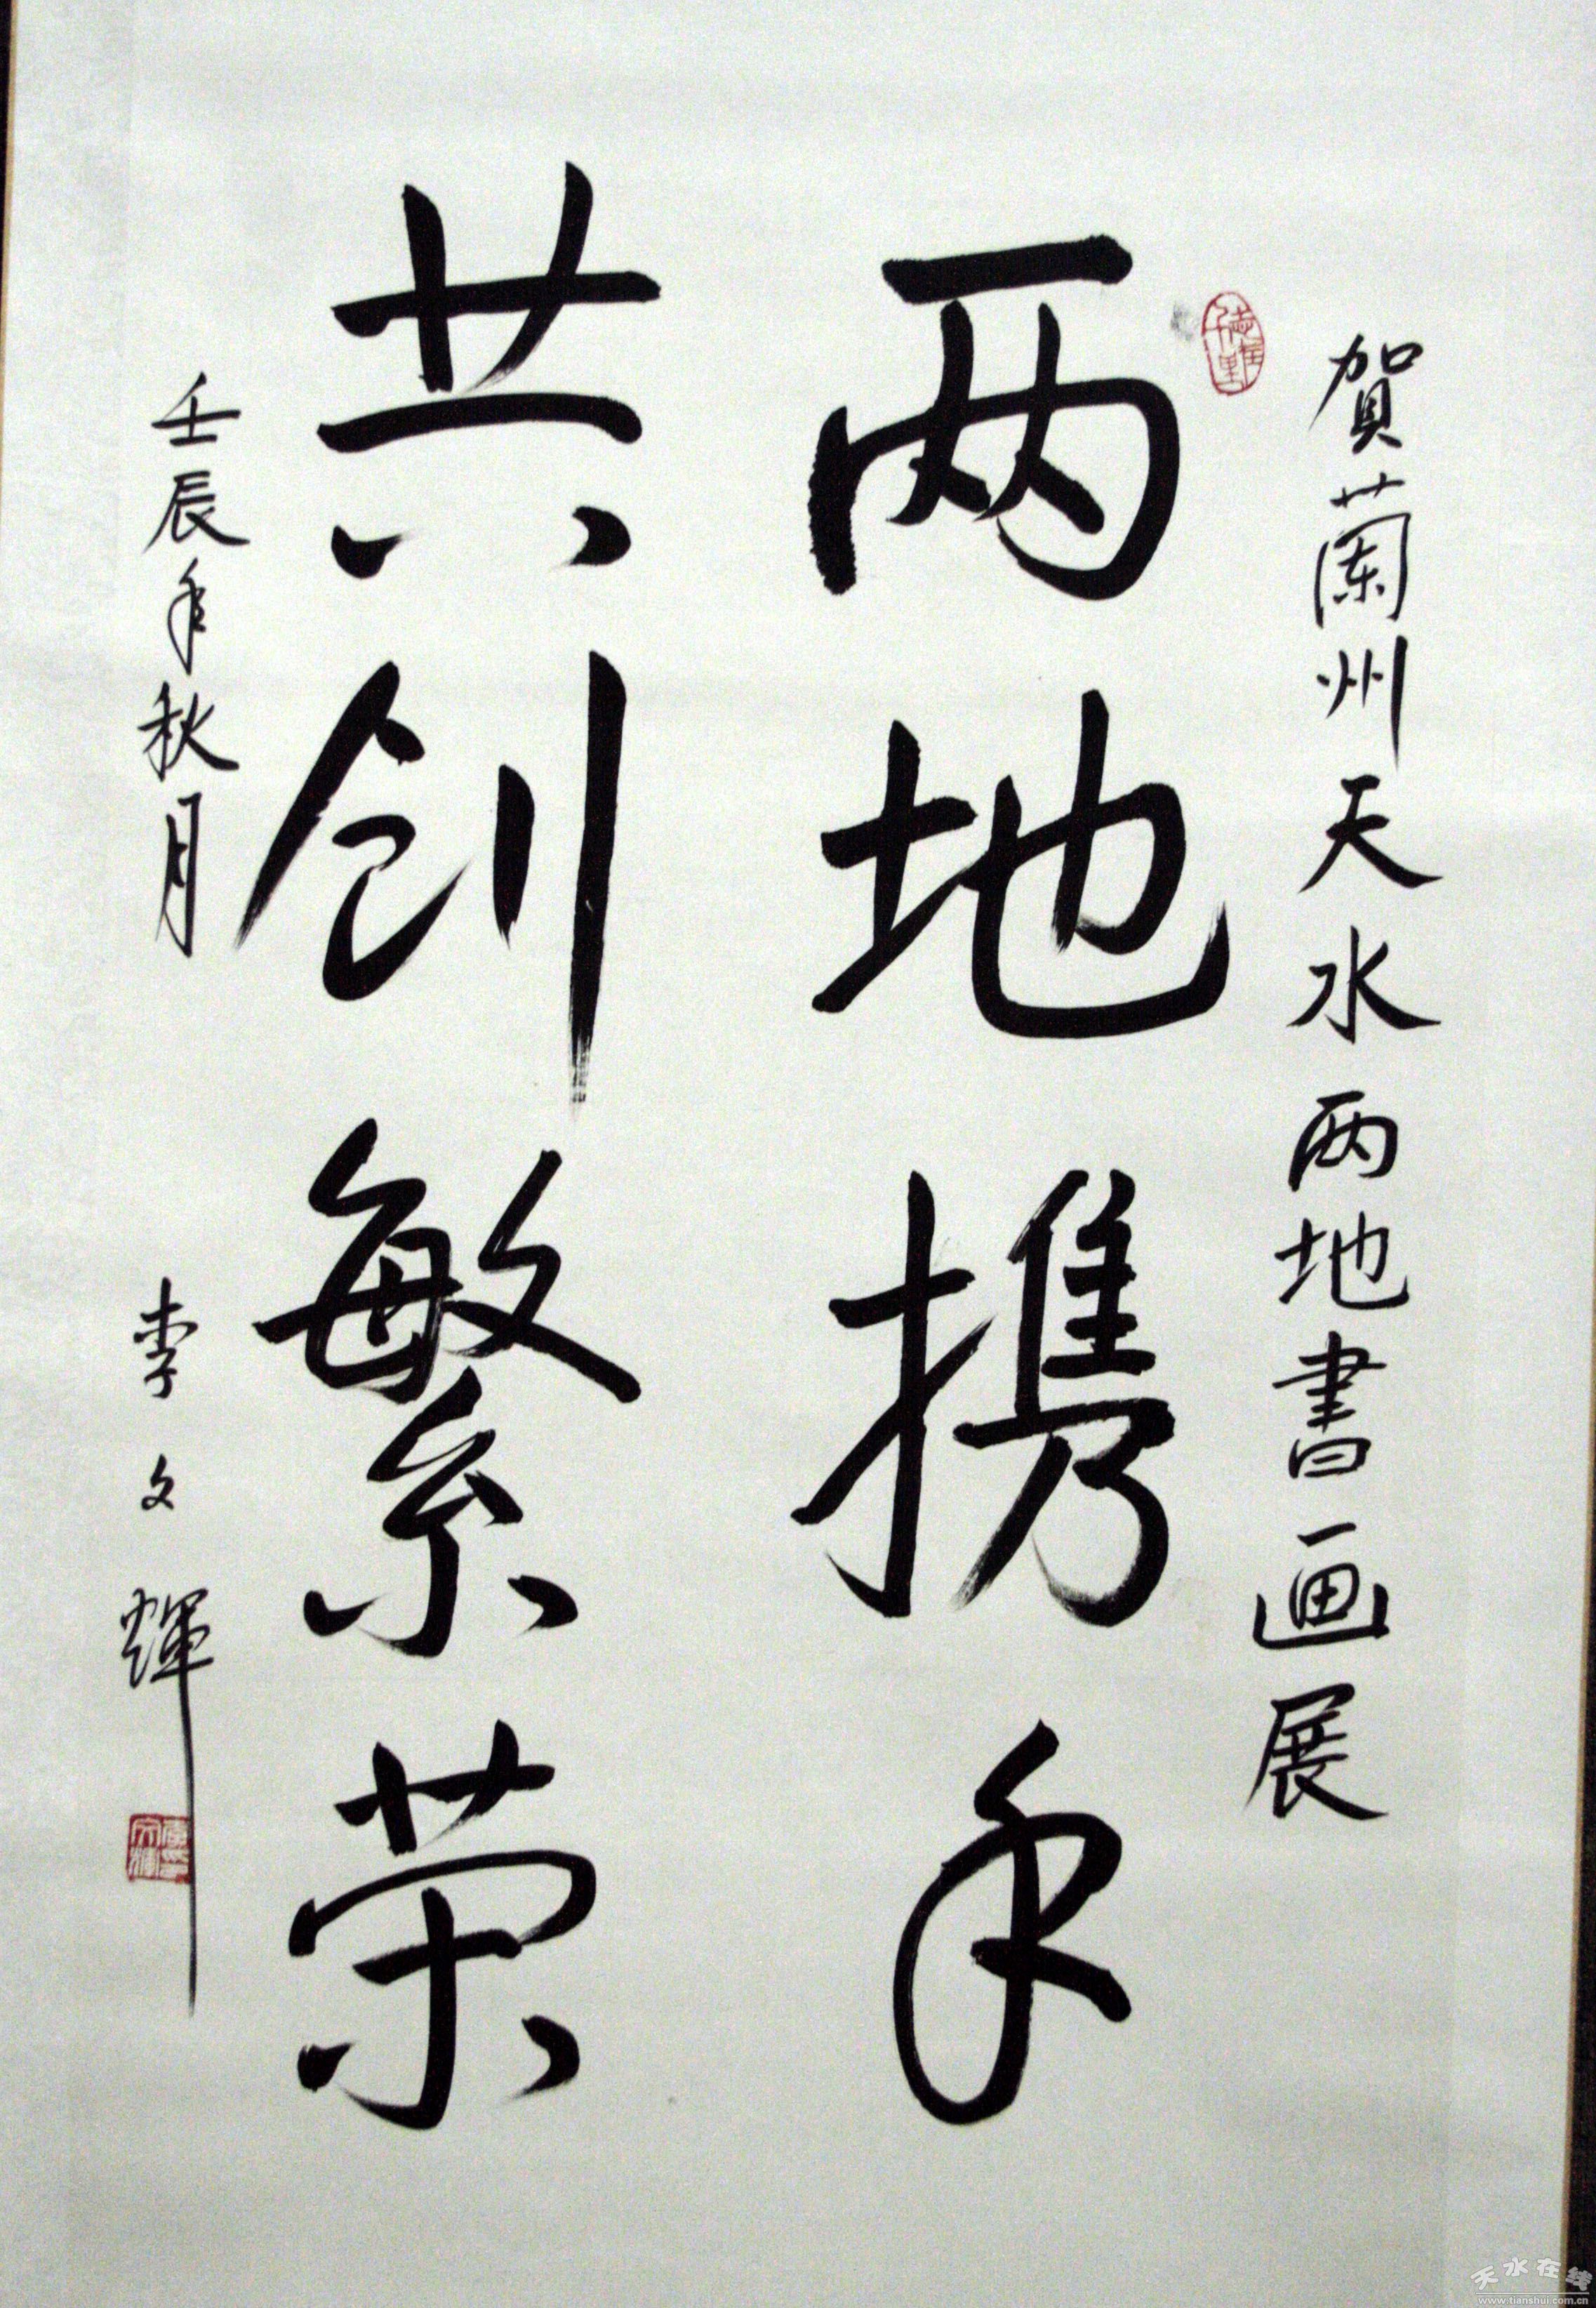 賀蘭州天水两地書画展
两地携手
共创繁荣
壬辰年秋月
李文輝
天水在线
www.tianshui.com.cn